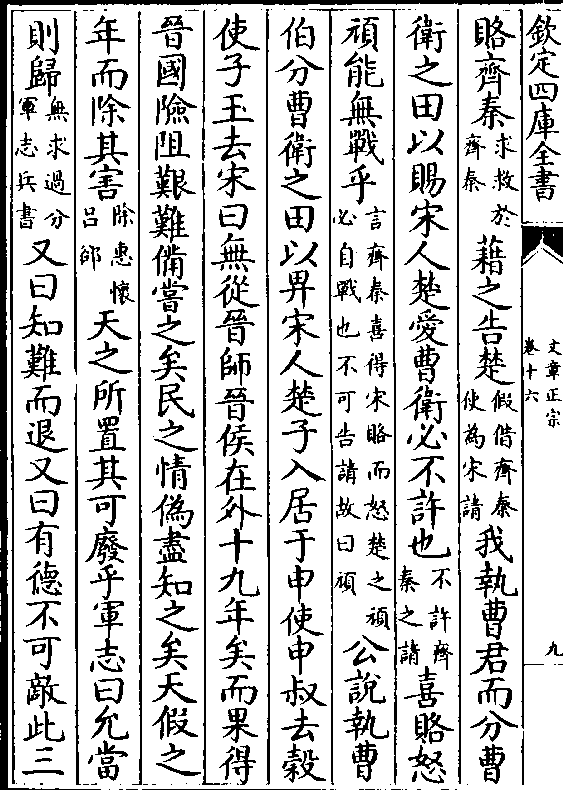 欽定四庫全書
文章正宗
卷十六
九
賂齊秦求救於齊秦藉之告楚假借齊秦使為宋請我執曹君而分曹
衛之田以賜宋人楚愛曹衛必不許也不許齊秦之請喜賂怒
頑能無戰乎言齊秦喜得宋賂而怒楚之頑必自戰也不可告請故曰頑公說執曹
伯分曹衛之田以畀宋人楚子入居于申使申叔去榖
使子玉去宋曰無從晉師晉侯在外十九年矣而果得
晉國險阻艱難備嘗之矣民之情偽盡知之矣天假之
年而除其害除惠懷呂郤天之所置其可廢乎軍志曰允當
則歸無求過分軍志兵書又曰知難而退又曰有德不可敵此三